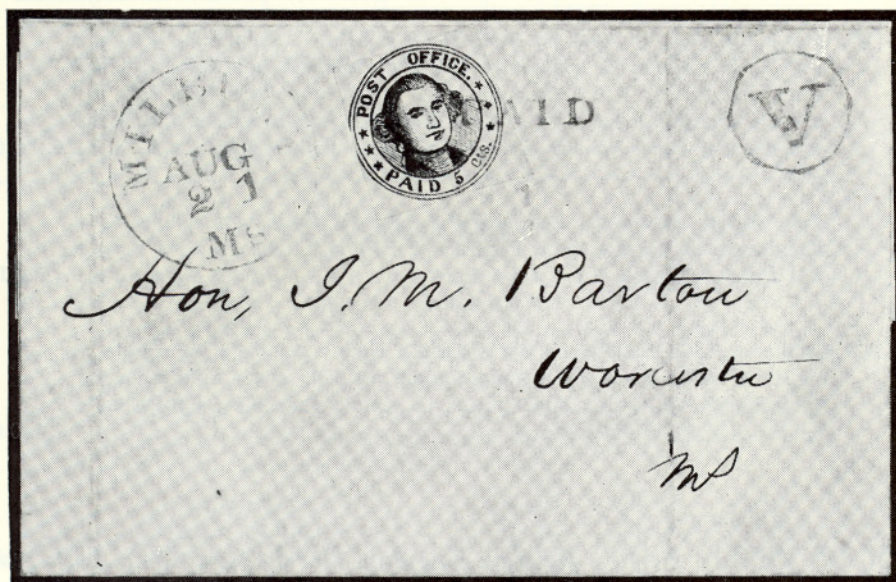 MILB
AUG
21
MS
POST OFFICE.
PAID 5 Cts.
PAID
V
Hon, I. M. Barton
Worcester
Ms